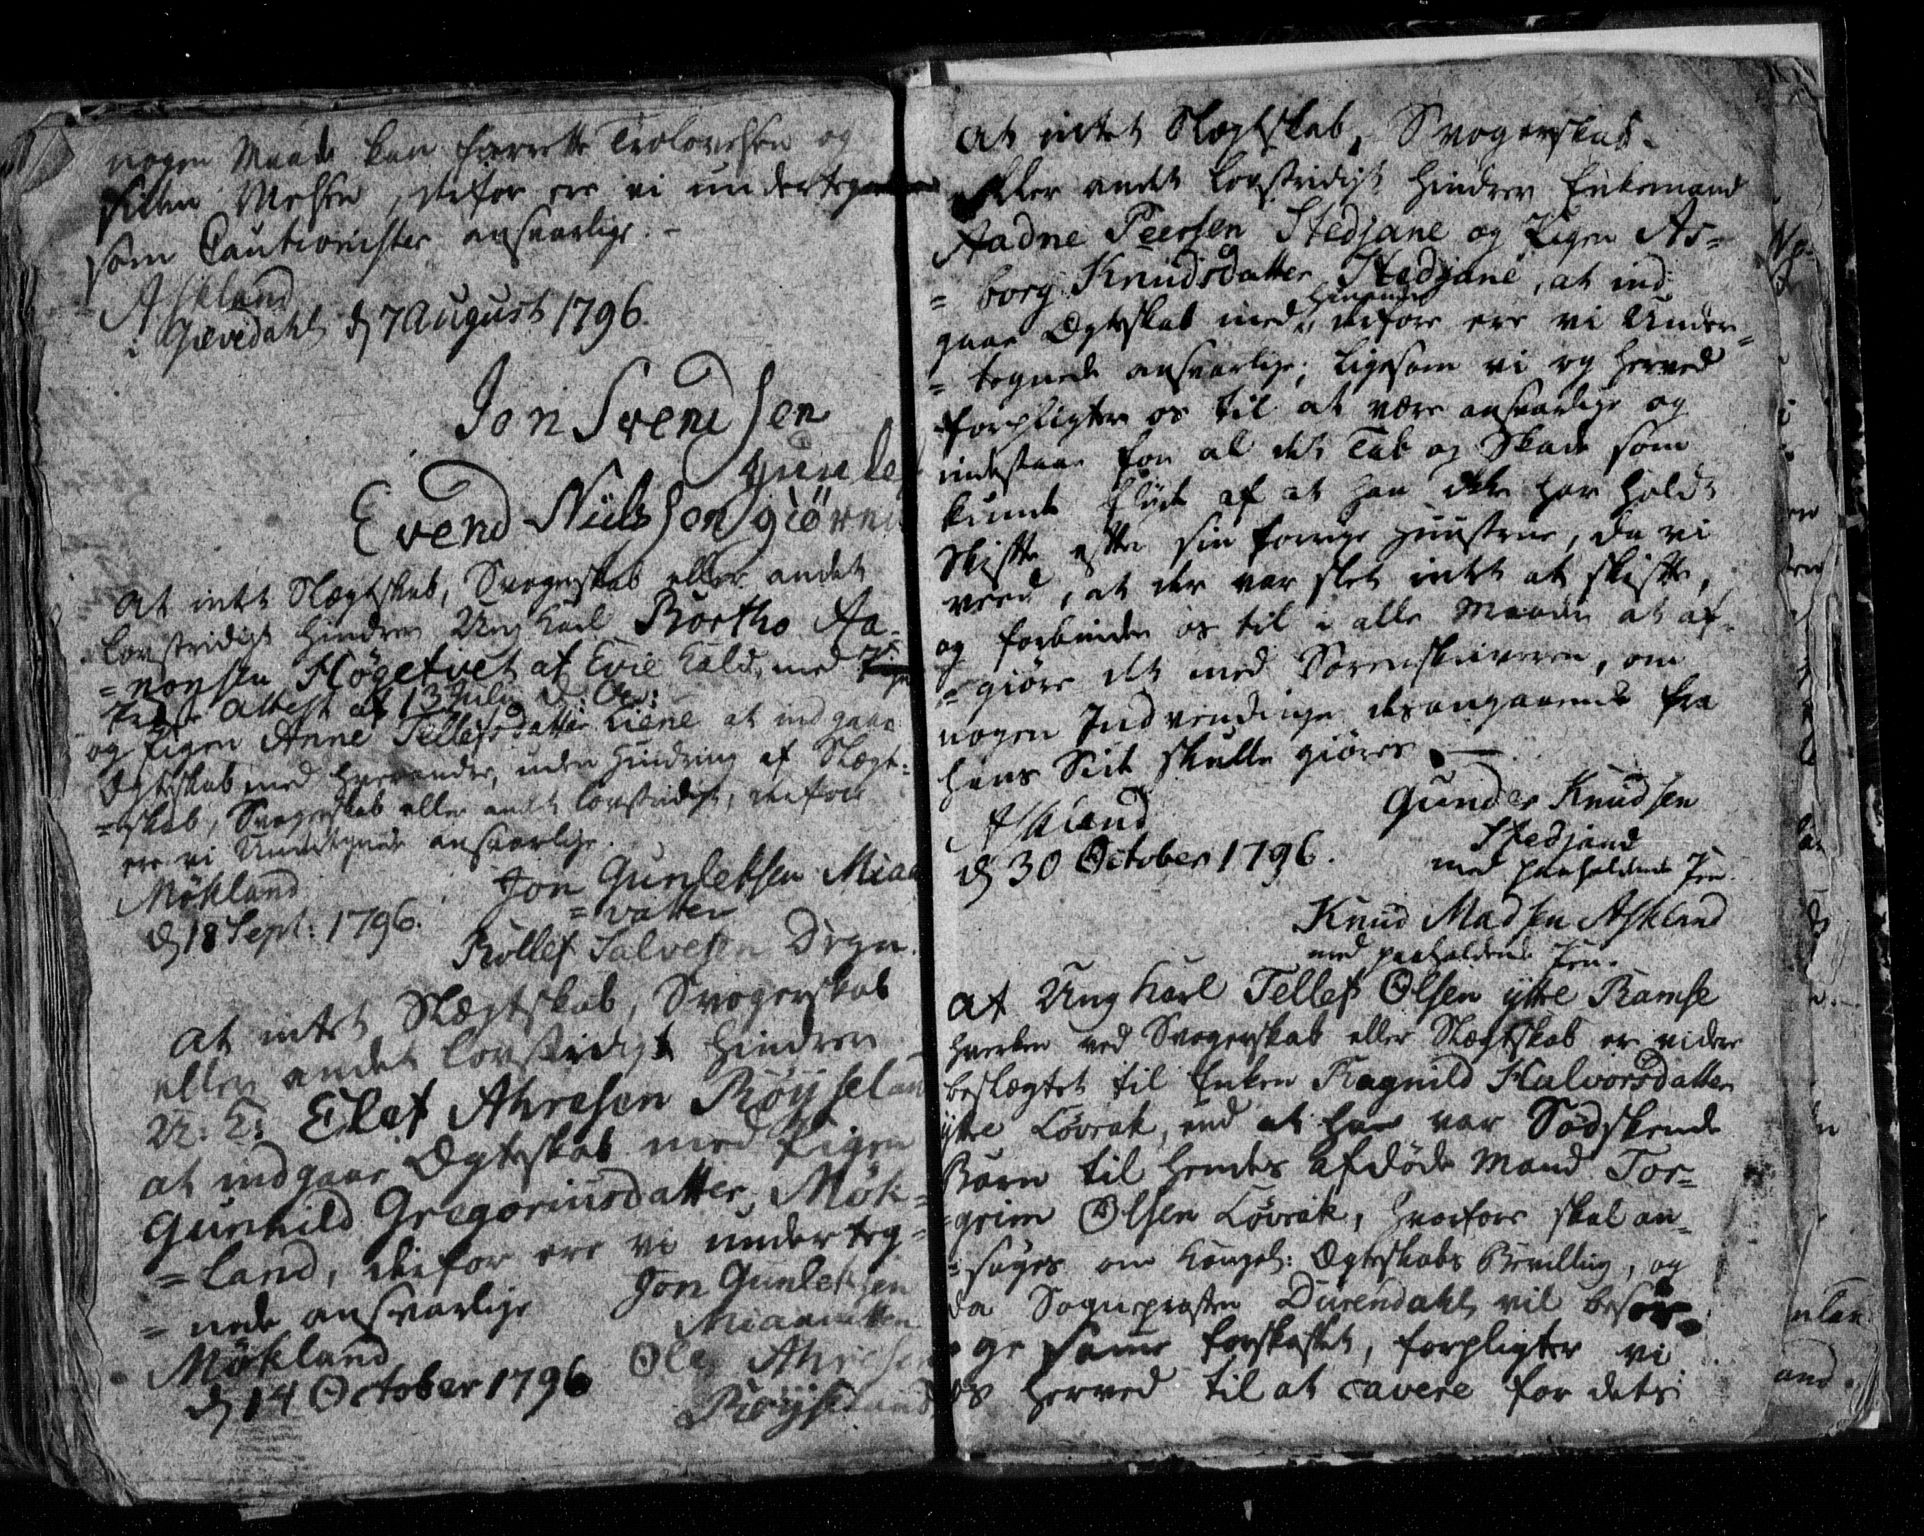 nogen Maade kan forrette Trolovelsen og
siden Vielsen, derfor ere vi undertegnede
som Cautionister ansvarlige. -
Askland
i Gievedahl d 7 August 1796.
Jon Svend sen
Evend Niels sen giøren
At intet Slægtskab, Svogerskab eller andet
lovstridigt hindrer Ung Karl Bortho Aa-
=nonsen Høgetvet af Evie Kald, med
attest af 13 July
og Pigen Anne Tellefsdatter Liene at indgaae
Ægteskab med hverandre, uden Hindring af Slægt-
=skab, Svogerskab eller andet lovstridigt, derfore
ere vi Undertegnede ansvarlige.
Mökland
d 18 Sept: 1796.
Jon Gunlefsen Miaa
=vatten
Rollef Salvesen Degn
At intet Slægtskab, Svogerskab
eller andet lovstridigt hindrer
U: K: Elef Ahresen Röyseland
at indgaae Ægteskab med Pigen
Gunhild Gregoriusdatter Mök-
=land, derfor ere vi underteg-
=nede ansvarlige
Mökland
d 14 October 1796
Jon Gunlefsen
Miaavatten
Ole Ahresen
Röyseland
At intet Slægtskab, Svogerskab
eller andet lovstridigt hindrer Enkemand
Aadne Peersen Stedjane og Pigen As-
=borg Knudsdatter Stedjane, at ind-
gaae Ægteskab med hinanden, derfore ere vi Under-
=tegnede ansvarlige; ligesom vi og herved
forpligter os til at være ansvarlige og
indestaae for al det Tab og Skade som
kunde flyde af at han ikke har holdt
Skifte efter sin forrige Huustrue, da vi
veed, at der var slet intet at skifte,
og forbinder os til i alle Maader at af-
=giøre det med Sorenskriveren, om
nogen Indvendinge desangaaende fra
hans Side skulle giøres. —
Askland
d 30 October 1796.
Gunder Knudsen
Stedjane
med paaholdende Pen.
Knud Madsen Askland
med paaholdende Pen.
At Ung Karl Tellef Olsen ytre Ramse
hverken ved Svogerskab eller Slægtskab er videre
beslægtet til Enken Ragnild Halvorsdatter
ytre Lövrak, end at han var Södskende
Barn til hendes afdöde Mand Tor-
=grim Olsen Lövrak, hvorfore skal an-
=söges om Kongel: Ægteskabs Bevilling, og
da Sognepræsten Düsendahl vil besör-
ge samme forskaffet, forpligter vi
os herved til at cavere for dets